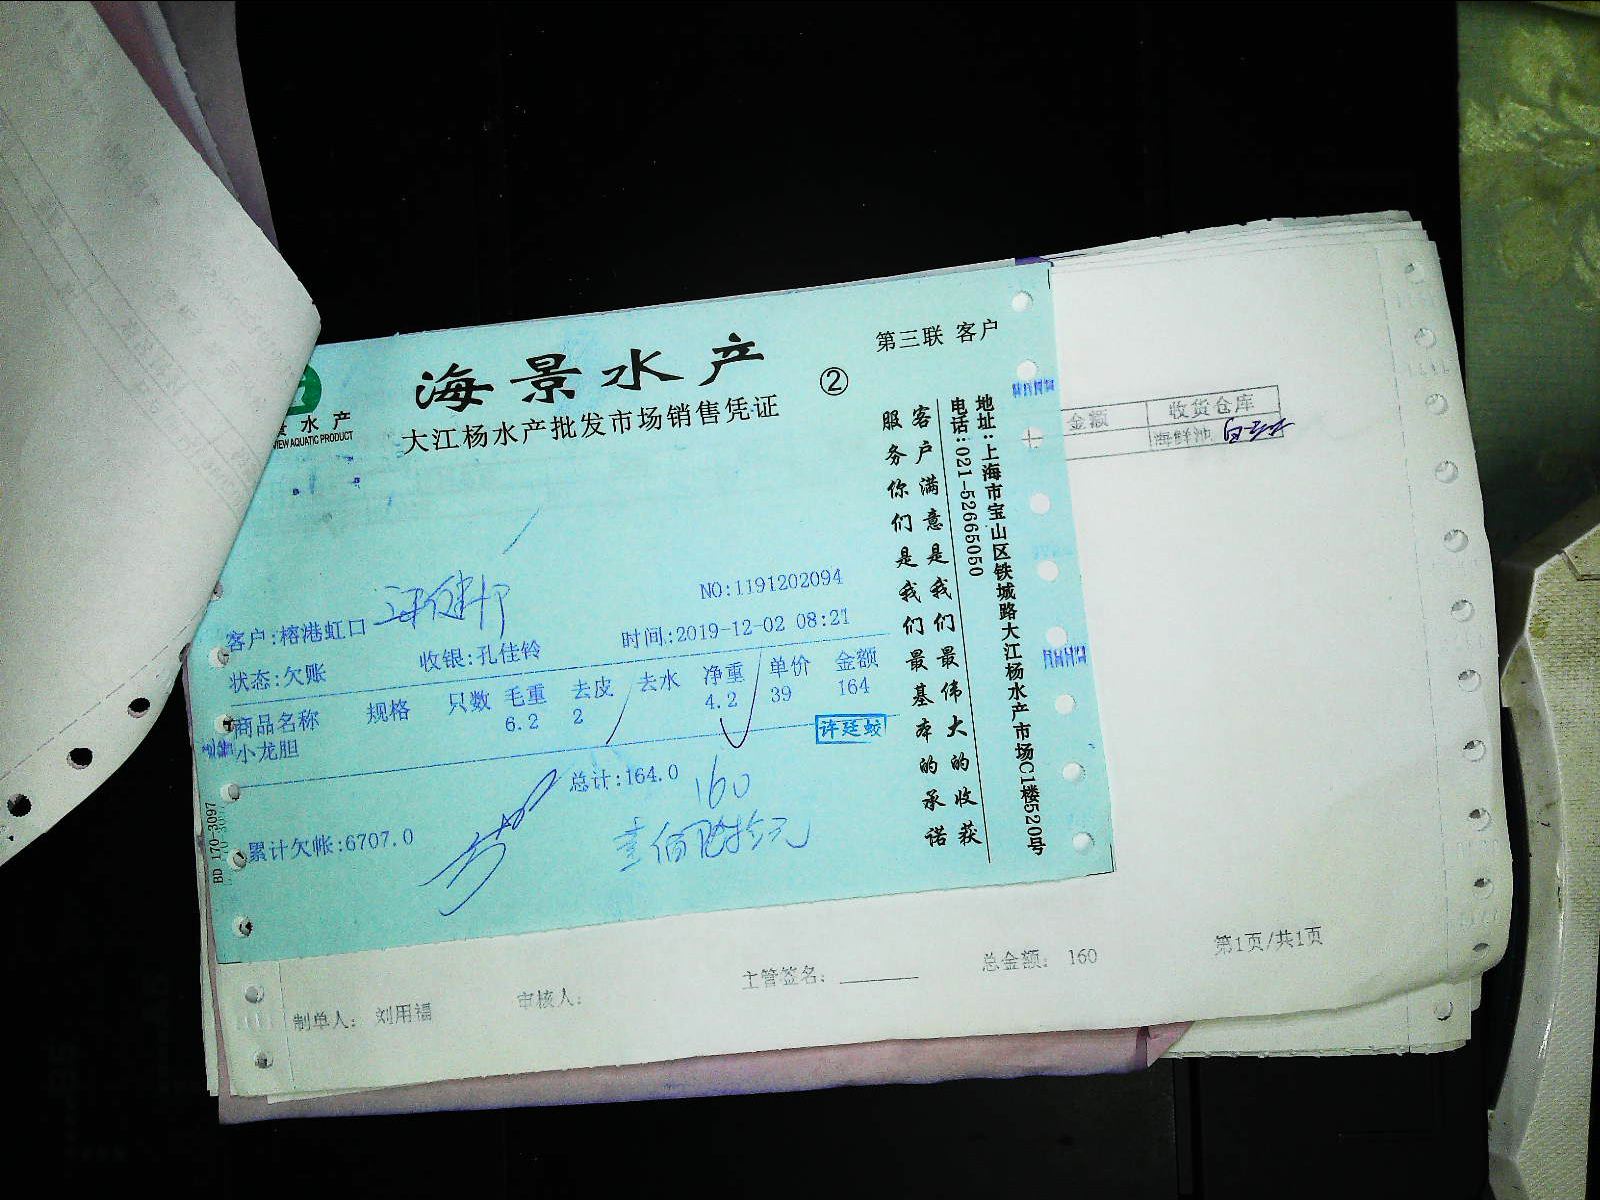 海景水产
大江杨水产批发市场销售凭证
②
第三联 客户
景水产
VIEW AQUATIC PRODUCT
NO:1191202094
客户:榕港虹口
时间:2019-12-02 08:21
状态:欠账 收银:孔佳铃
商品名称 规格 只数 毛重 去皮 去水 净重 单价 金额
小龙胆 6.2 2 4.2 39 164
许廷蛟
总计:164.0
160
累计欠帐:6707.0
BD 170-3097
地址:上海市宝山区铁城路大江杨水产市场C1楼520号
电话:021-52665050
客户满意是我们最伟大的收获
服务你们是我们最基本的承诺
金额 收货仓库
海鲜池
制单人: 刘用福 审核人: 主管签名: 总金额: 160 第1页/共1页